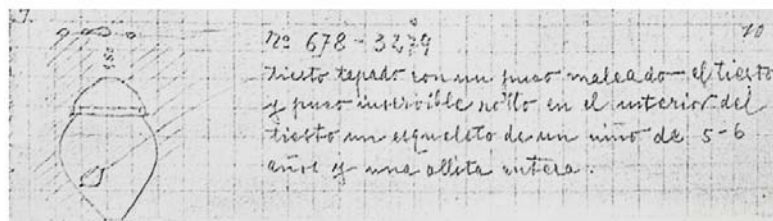 7.
10
180
Nº 678 - 3279
Tiesto tapado con un puco maleado - el tiesto
y puco inservible roto en el interior del
tiesto un esqueleto de un niño de 5-6
años y una ollita entera.